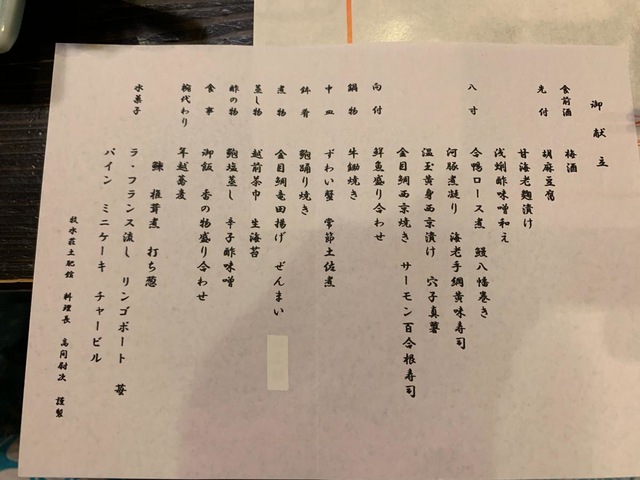 御献立
食前酒 梅酒
先付 胡麻豆腐
甘海老麹漬け
浅蜊酢味噌和え
八寸 合鴨ロース煮 鰻八幡巻き
河豚煮凝り 海老手綱黄味寿司
温玉黄身西京漬け 穴子真薯
金目鯛西京焼き サーモン百合根寿司
向付 鮮魚盛り合わせ
鍋物 牛鋤焼き
中皿 ずわい蟹 常節土佐煮
鉢肴 鮑踊り焼き
煮物 金目鯛竜田揚げ ぜんまい
蒸し物 越前茶巾 生海苔
酢の物 鮑塩蒸し 辛子酢味噌
食事 御飯 香の物盛り合わせ
椀代わり 年越蕎麦
鰊 椎茸煮 打ち葱
水菓子 ラ・フランス流し リンゴボート 苺
パイン ミニケーキ チャービル
牧水荘土肥館 料理長 高岡尉次 謹製